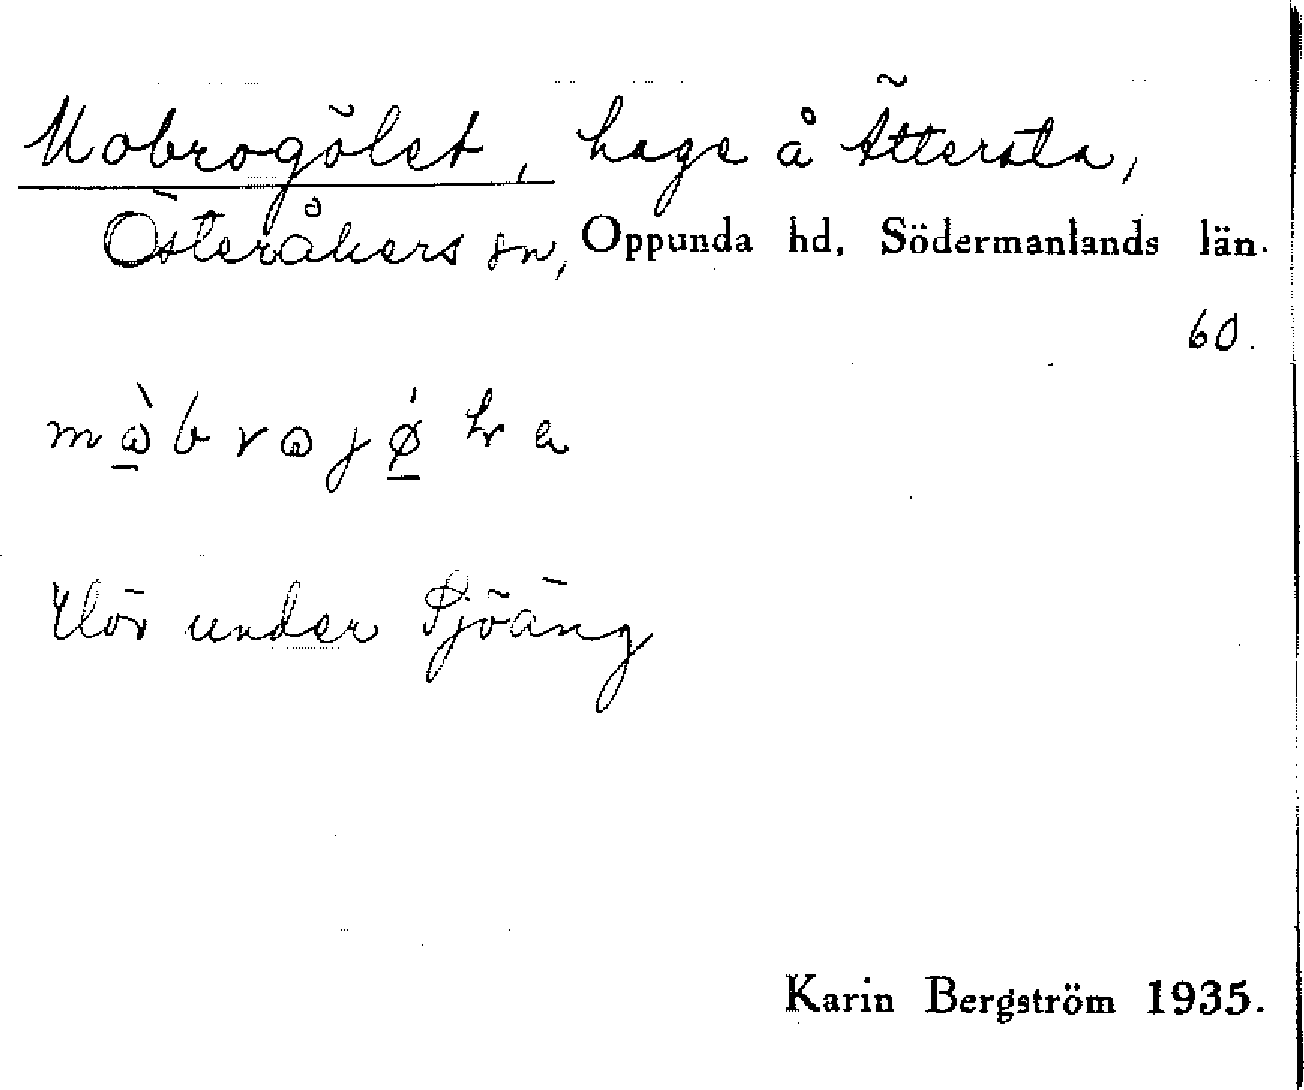 Mobrogölet, hage å Ättersta,
Österåkers sn, Oppunda hd. Södermanlands län.
60.
Hör under Sjöäng
Karin Bergström 1935.